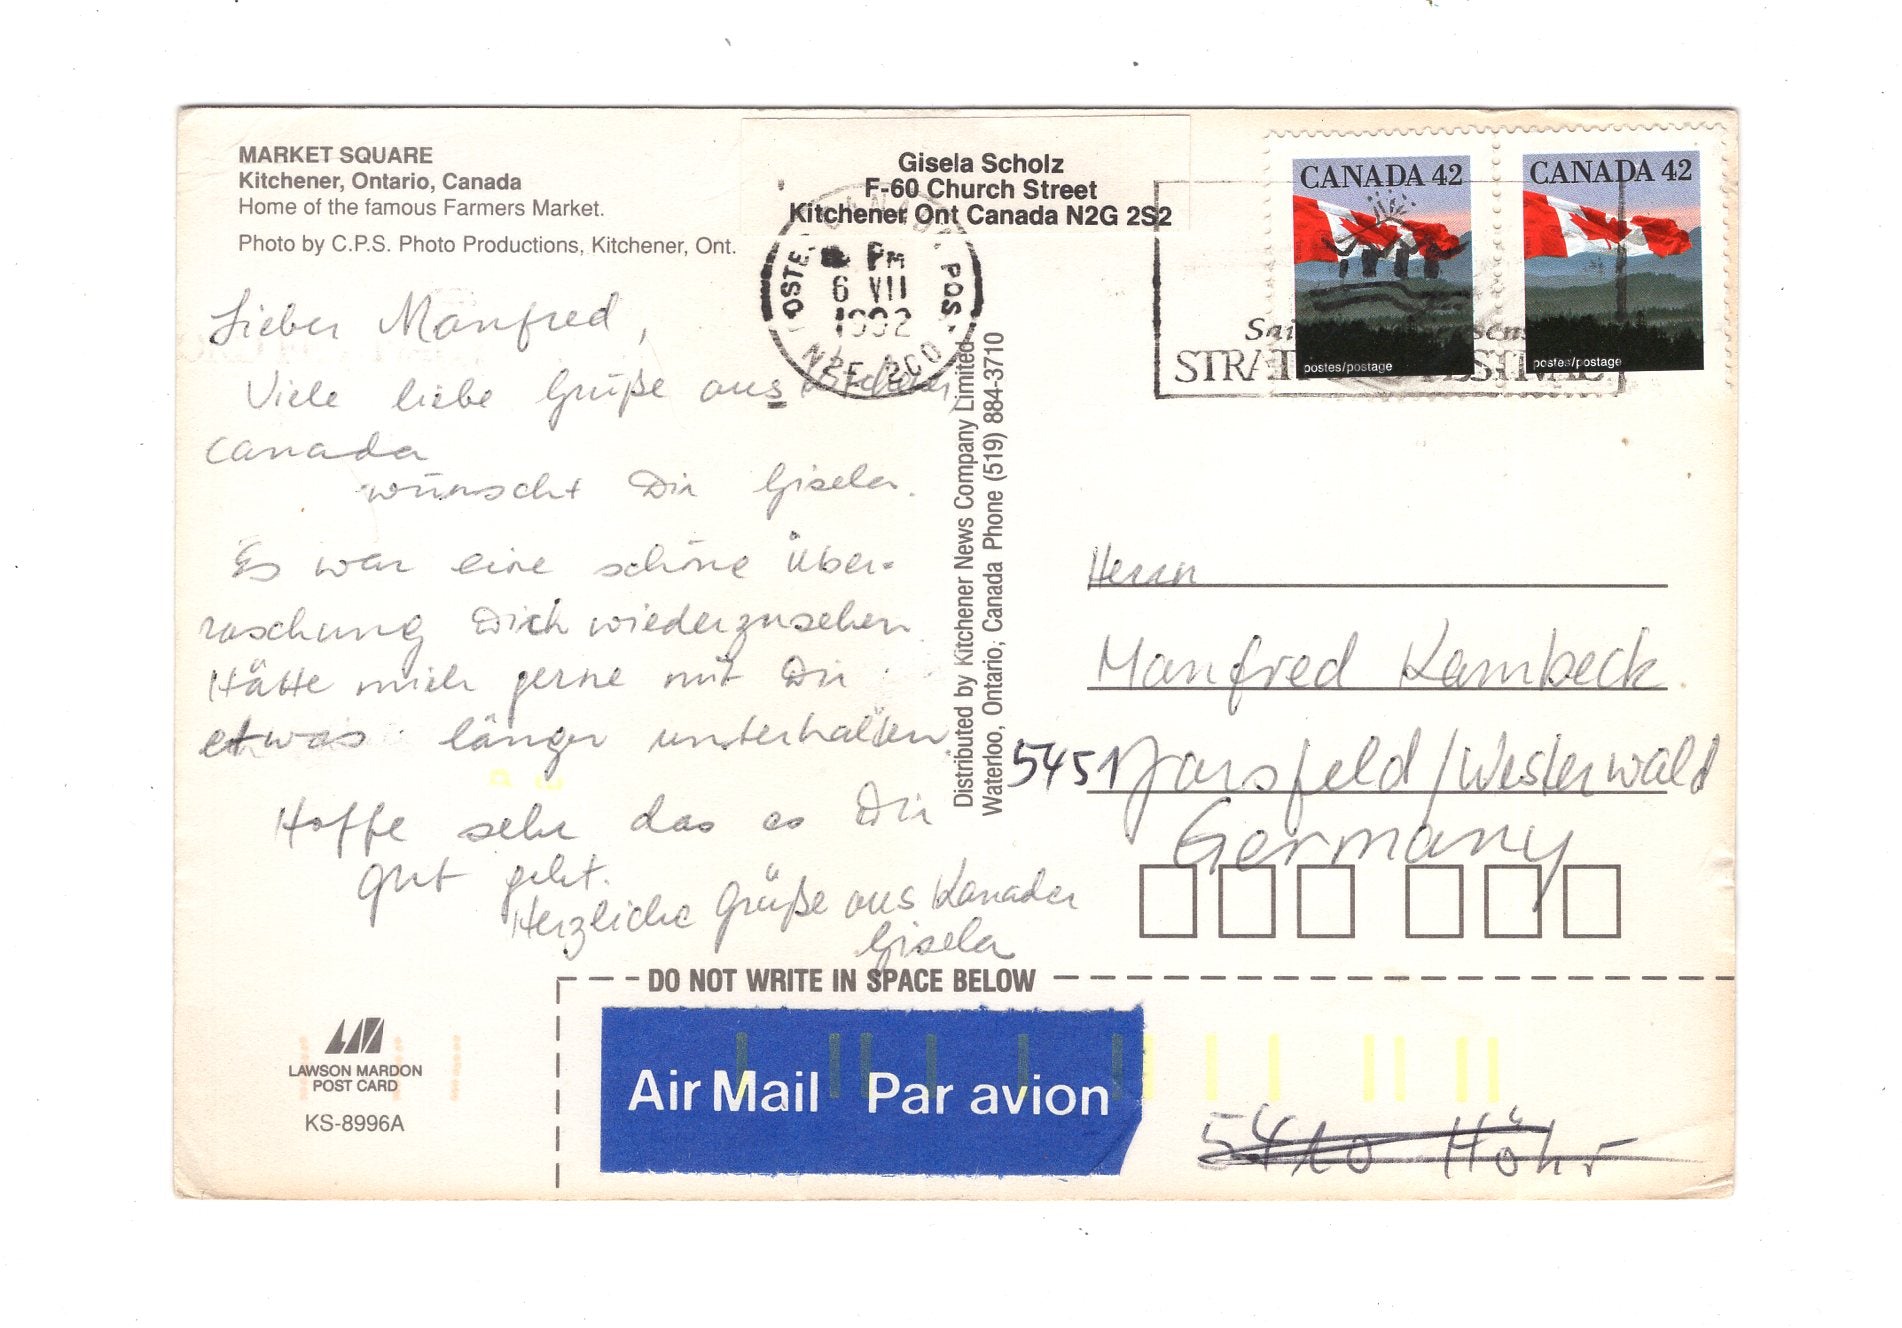 MARKET SQUARE
Kitchener, Ontario, Canada
Home of the famous Farmers Market.
Photo by C.P.S. Photo Productions, Kitchener, Ont.
Gisela Scholz
F-60 Church Street
Kitchener Ont Canada N2G 2S2
PM
6 VII
1992
CANADA 42
postes/postage
CANADA 42
postes/postage
Lieber Manfred,
Viele liebe Grüße aus
Canada
wünscht Dir Gisela.
Es war eine schöne Über-
raschung Dich wiederzusehen
Hätte mich gerne mit Dir
etwas länger unterhalten.
Hoffe sehr das es Dir
gut geht.
Herzliche Grüße aus Kanada
Gisela
Distributed by Kitchener News Company Limited
Waterloo, Ontario, Canada Phone (519) 884-3710
Herrn
Manfred Kambeck
5451 /Westerwald
Germany
DO NOT WRITE IN SPACE BELOW
LAWSON MARDON
POST CARD
KS-8996A
Air Mail Par avion
5410 Höhr